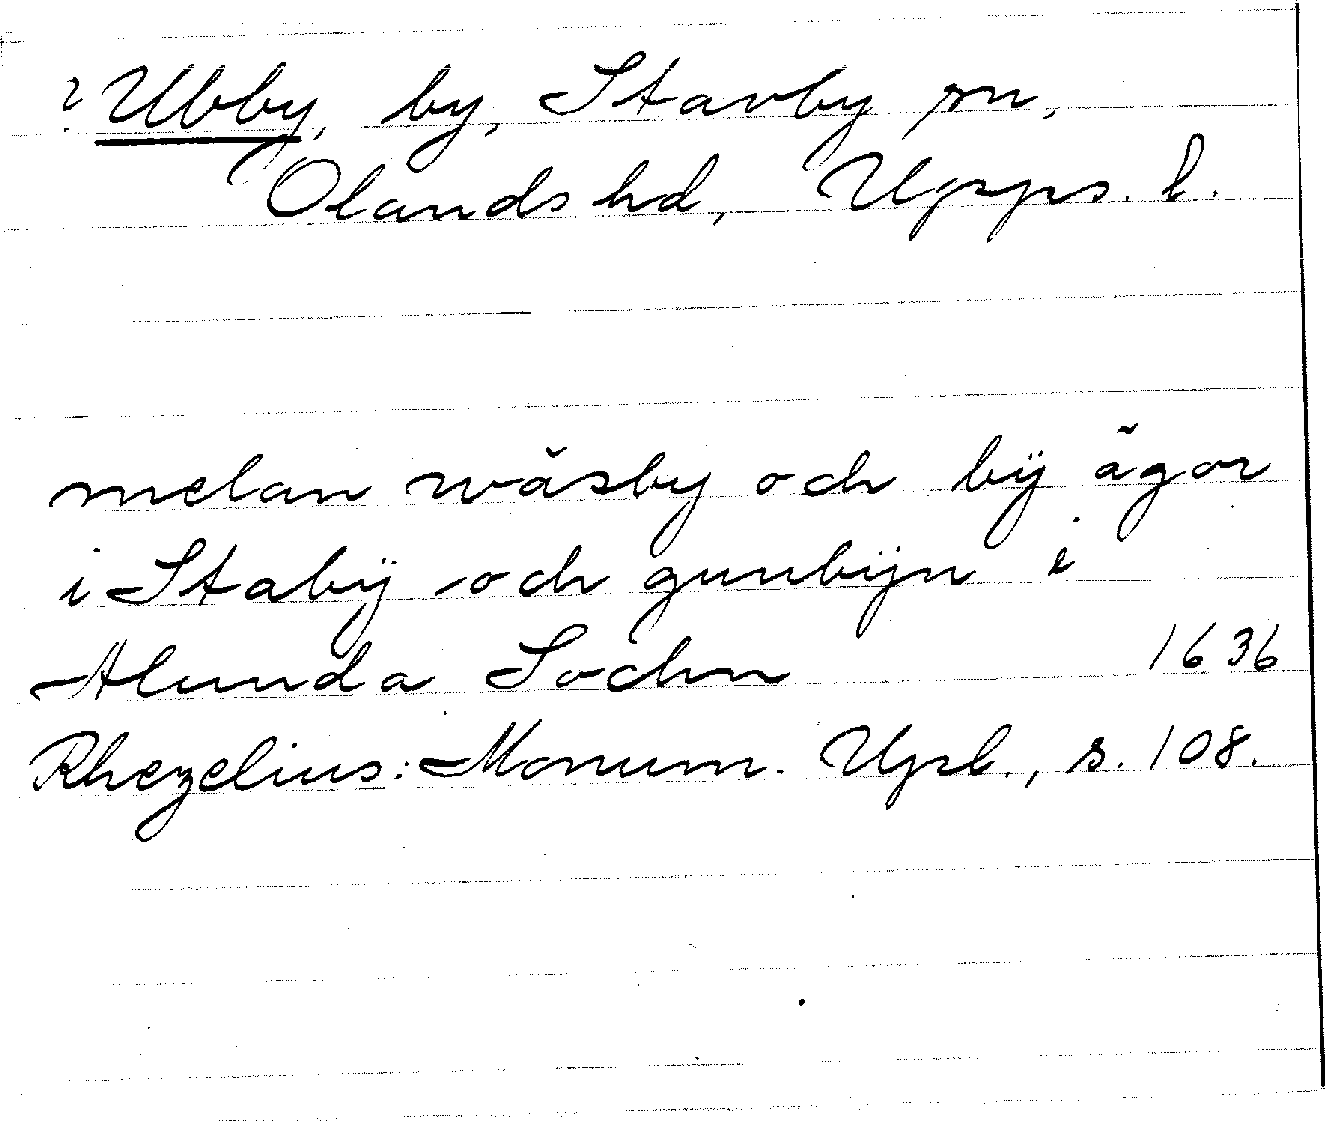 ? Ubby, by, Stavby sn,
Olands hd, Upps. l.
melan wäsby och bÿ ägor
i Stabÿ och gunbÿn i
Alunda Sochn 1636
Rhezelius: Monum. Upl., s. 108.